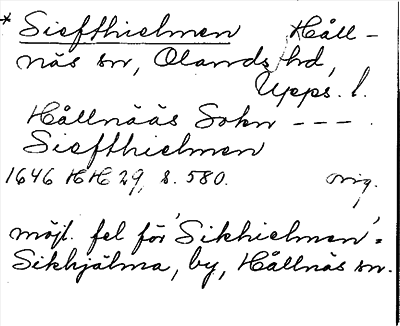 * Siefthielmen Håll-
näs sn, Olands hd,
Upps. l.
Hållnääs Sokn ---.
Siefthielmen
1646 HH 29, s. 580. orig.
möjl. fel för 'Sikhielmen' =
Sikhjälma, by, Hållnäs sn.